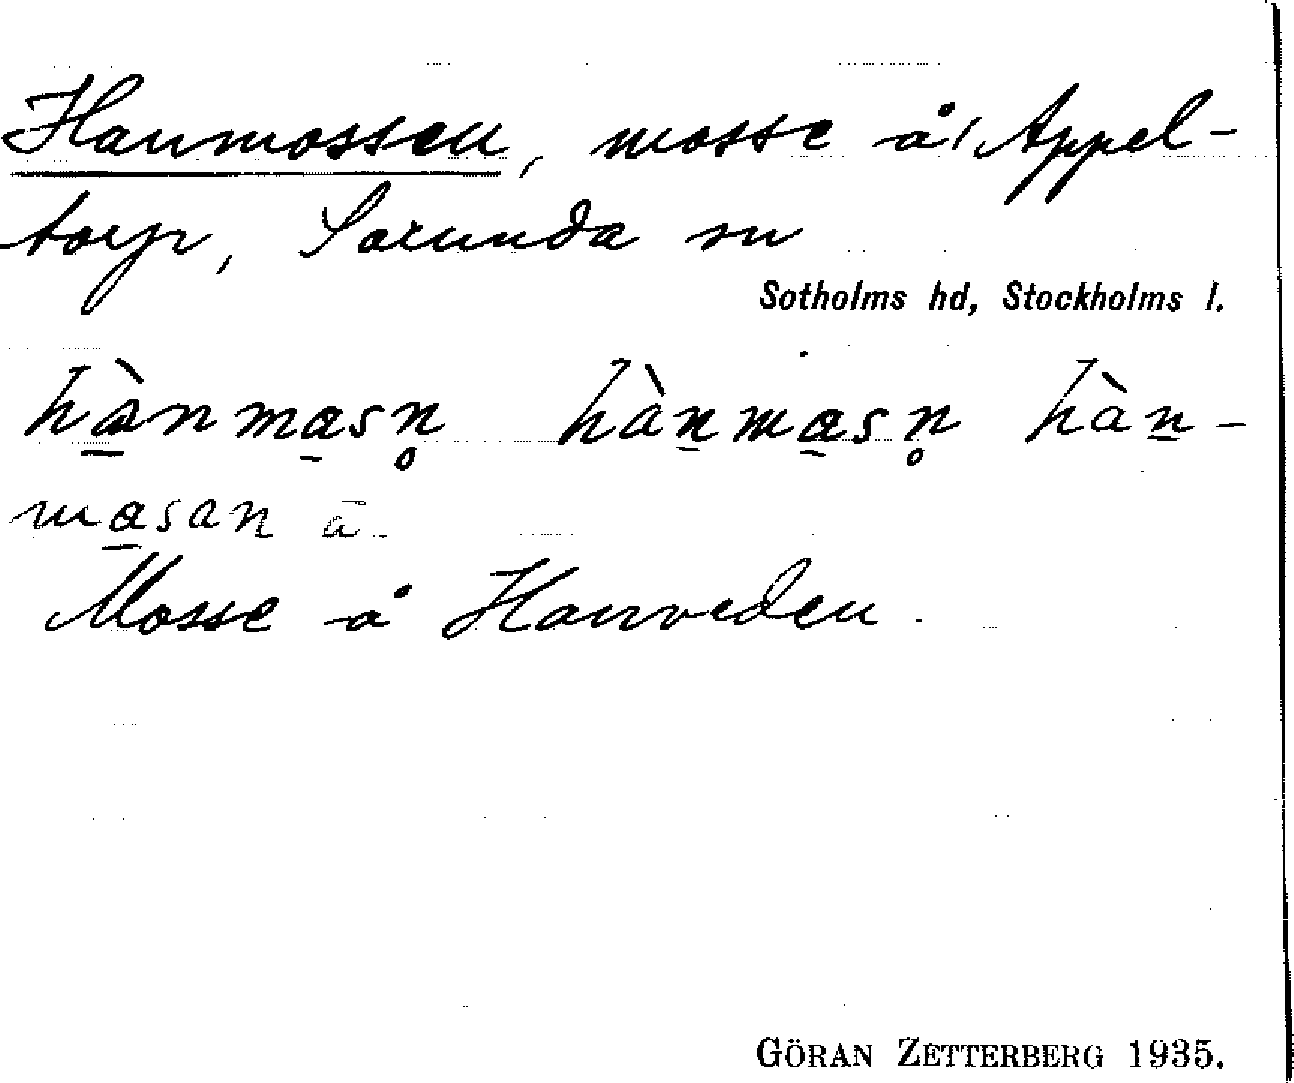 Hanmossen, mosse å Appel-
torp, Sorunda sn
Sotholms hd, Stockholms l.
hànmasn̥ hànmasn̥ hàn-
masan ā.
Mosse å Hanveden.
GÖRAN ZETTERBERG 1935.